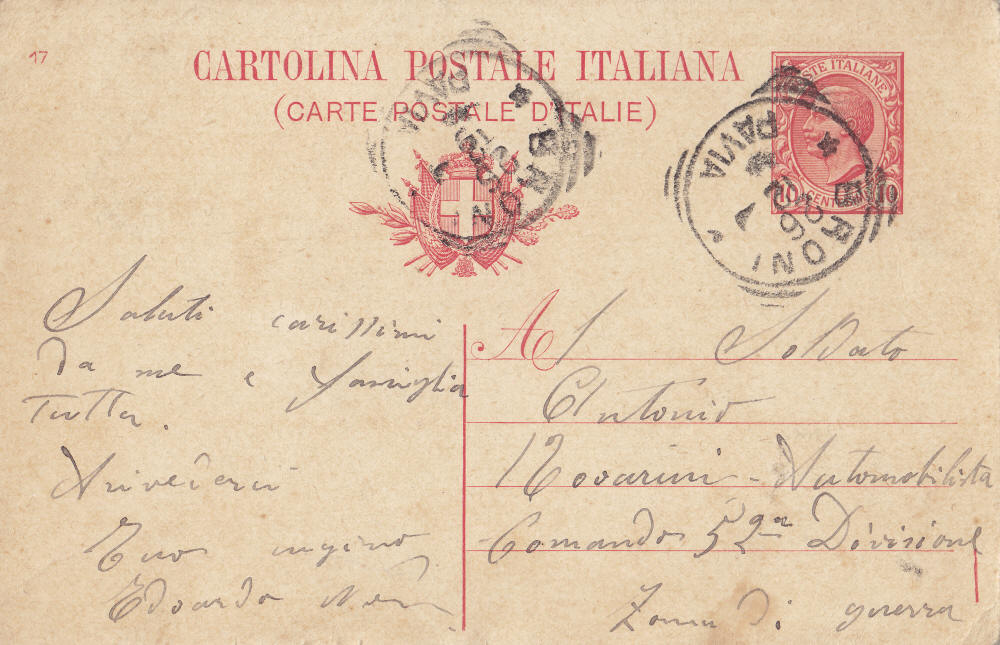 17
CARTOLINA POSTALE ITALIANA
(CARTE POSTALE D'ITALIE)
POSTE ITALIANE
10 CENTESIMI 10
BRONI
PAVIA
BRONI
PAVIA
Saluti carissimi
da me e famiglia
tutta.
Arivederci
Tuo cugino
Edoardo
Al Soldato
Antonio
Novarini - Automobilista
Comando 52a Divisione
Zona di guerra